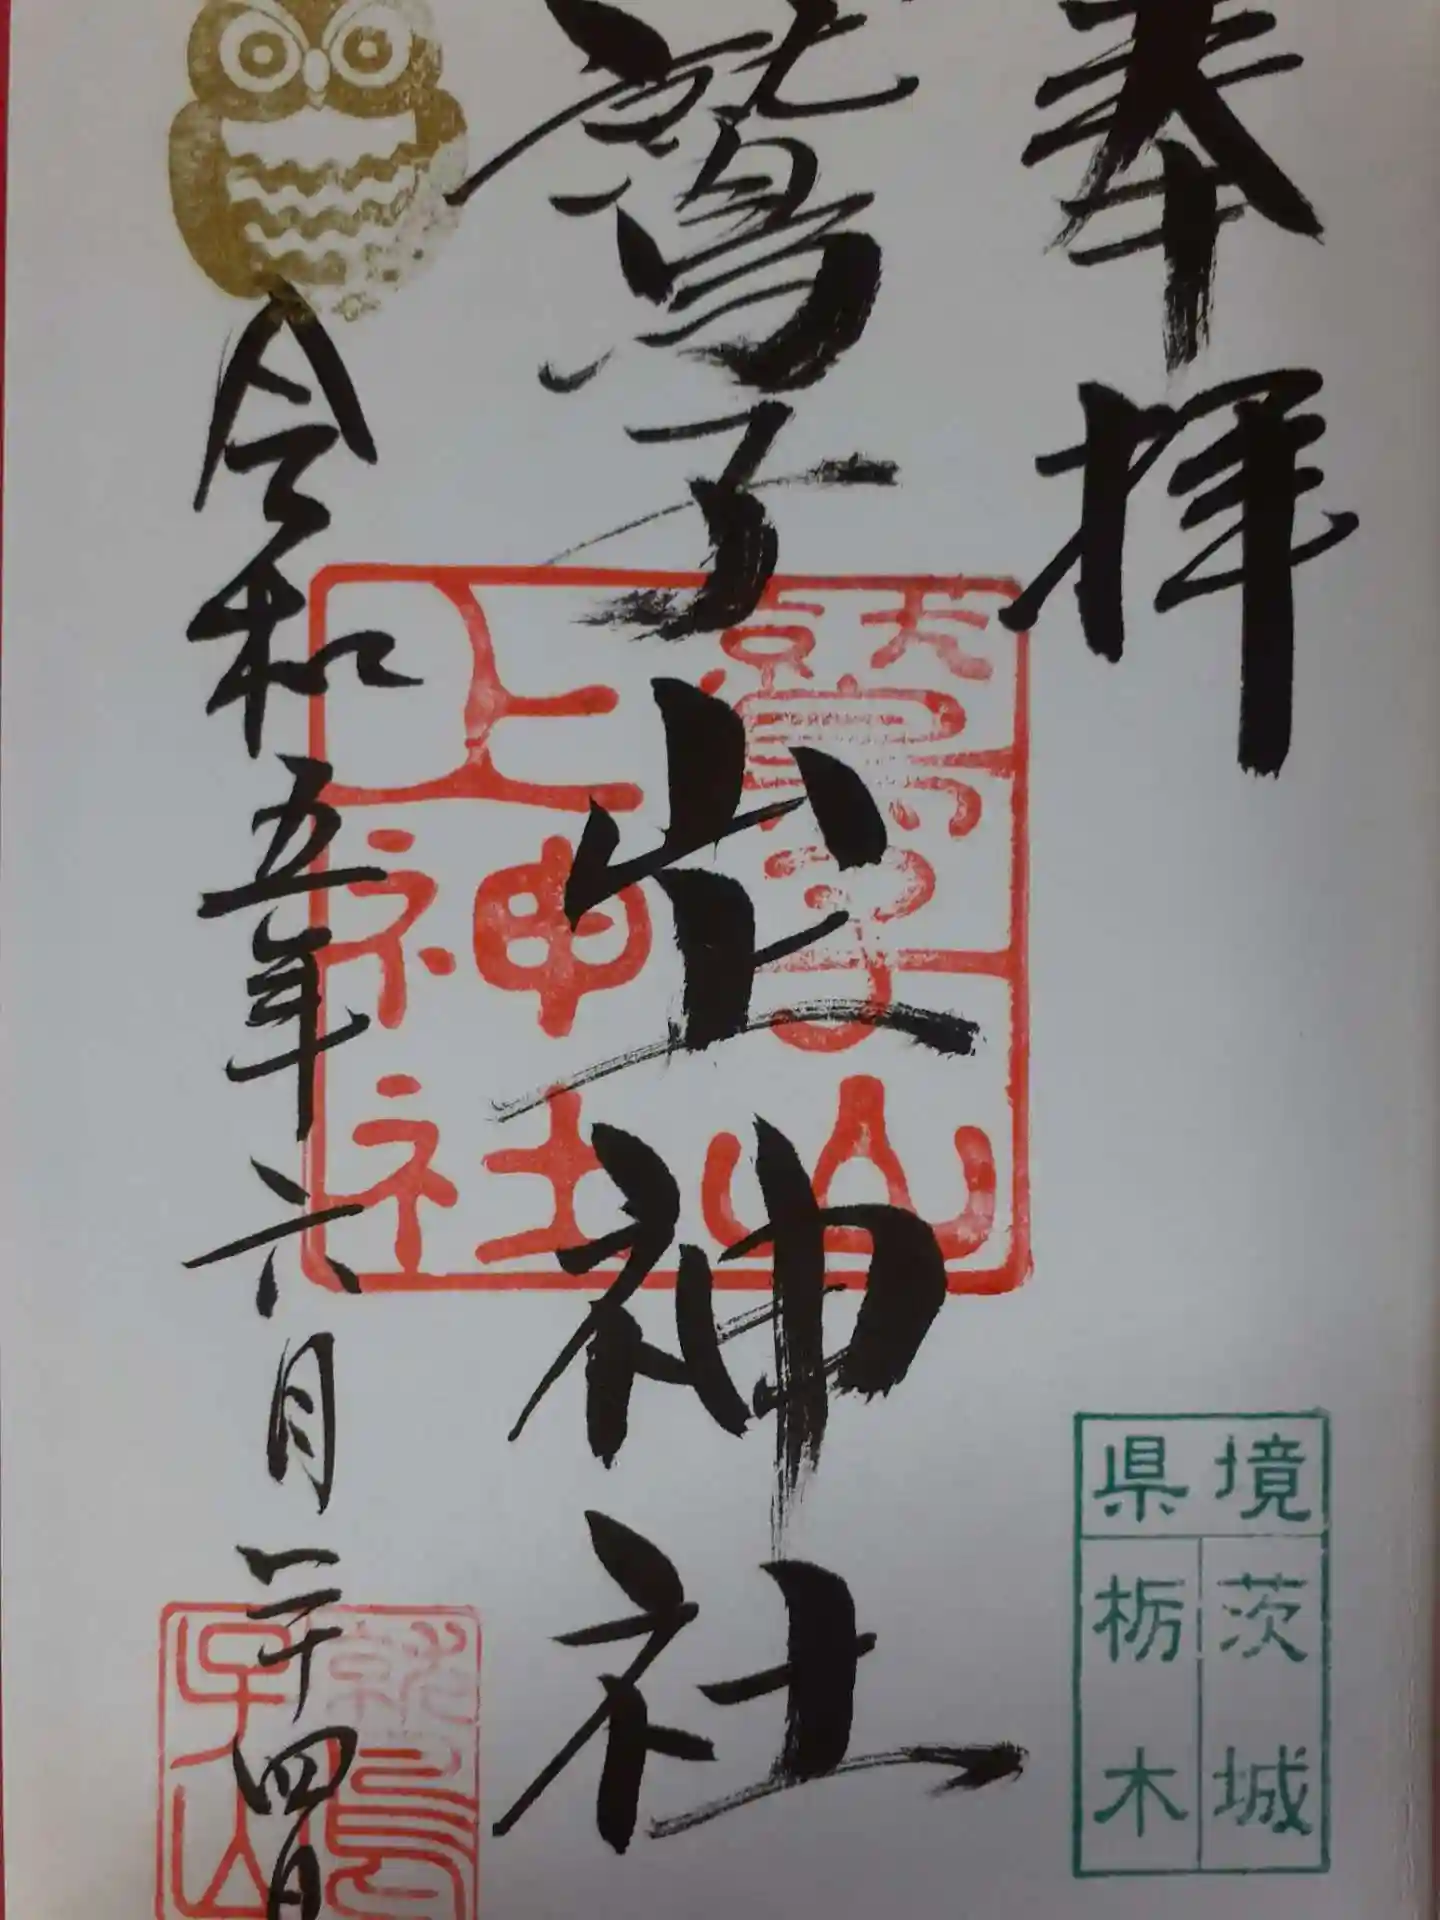 奉拝
県境
茨城
栃木
鷲子山上神社
鷲子山
上神社
令和五年六月二十四日
鷲
子山